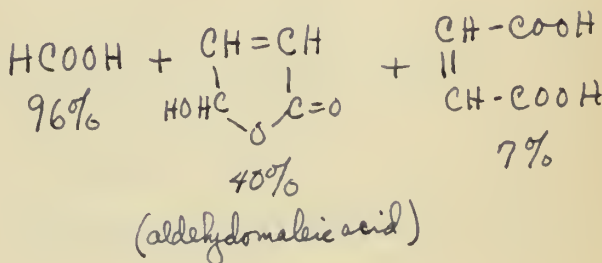 HCOOH + CH=CH + CH-COOH
HOHC C=O || CH-COOH
O
96% 40% 7%
(aldehydomaleic acid)